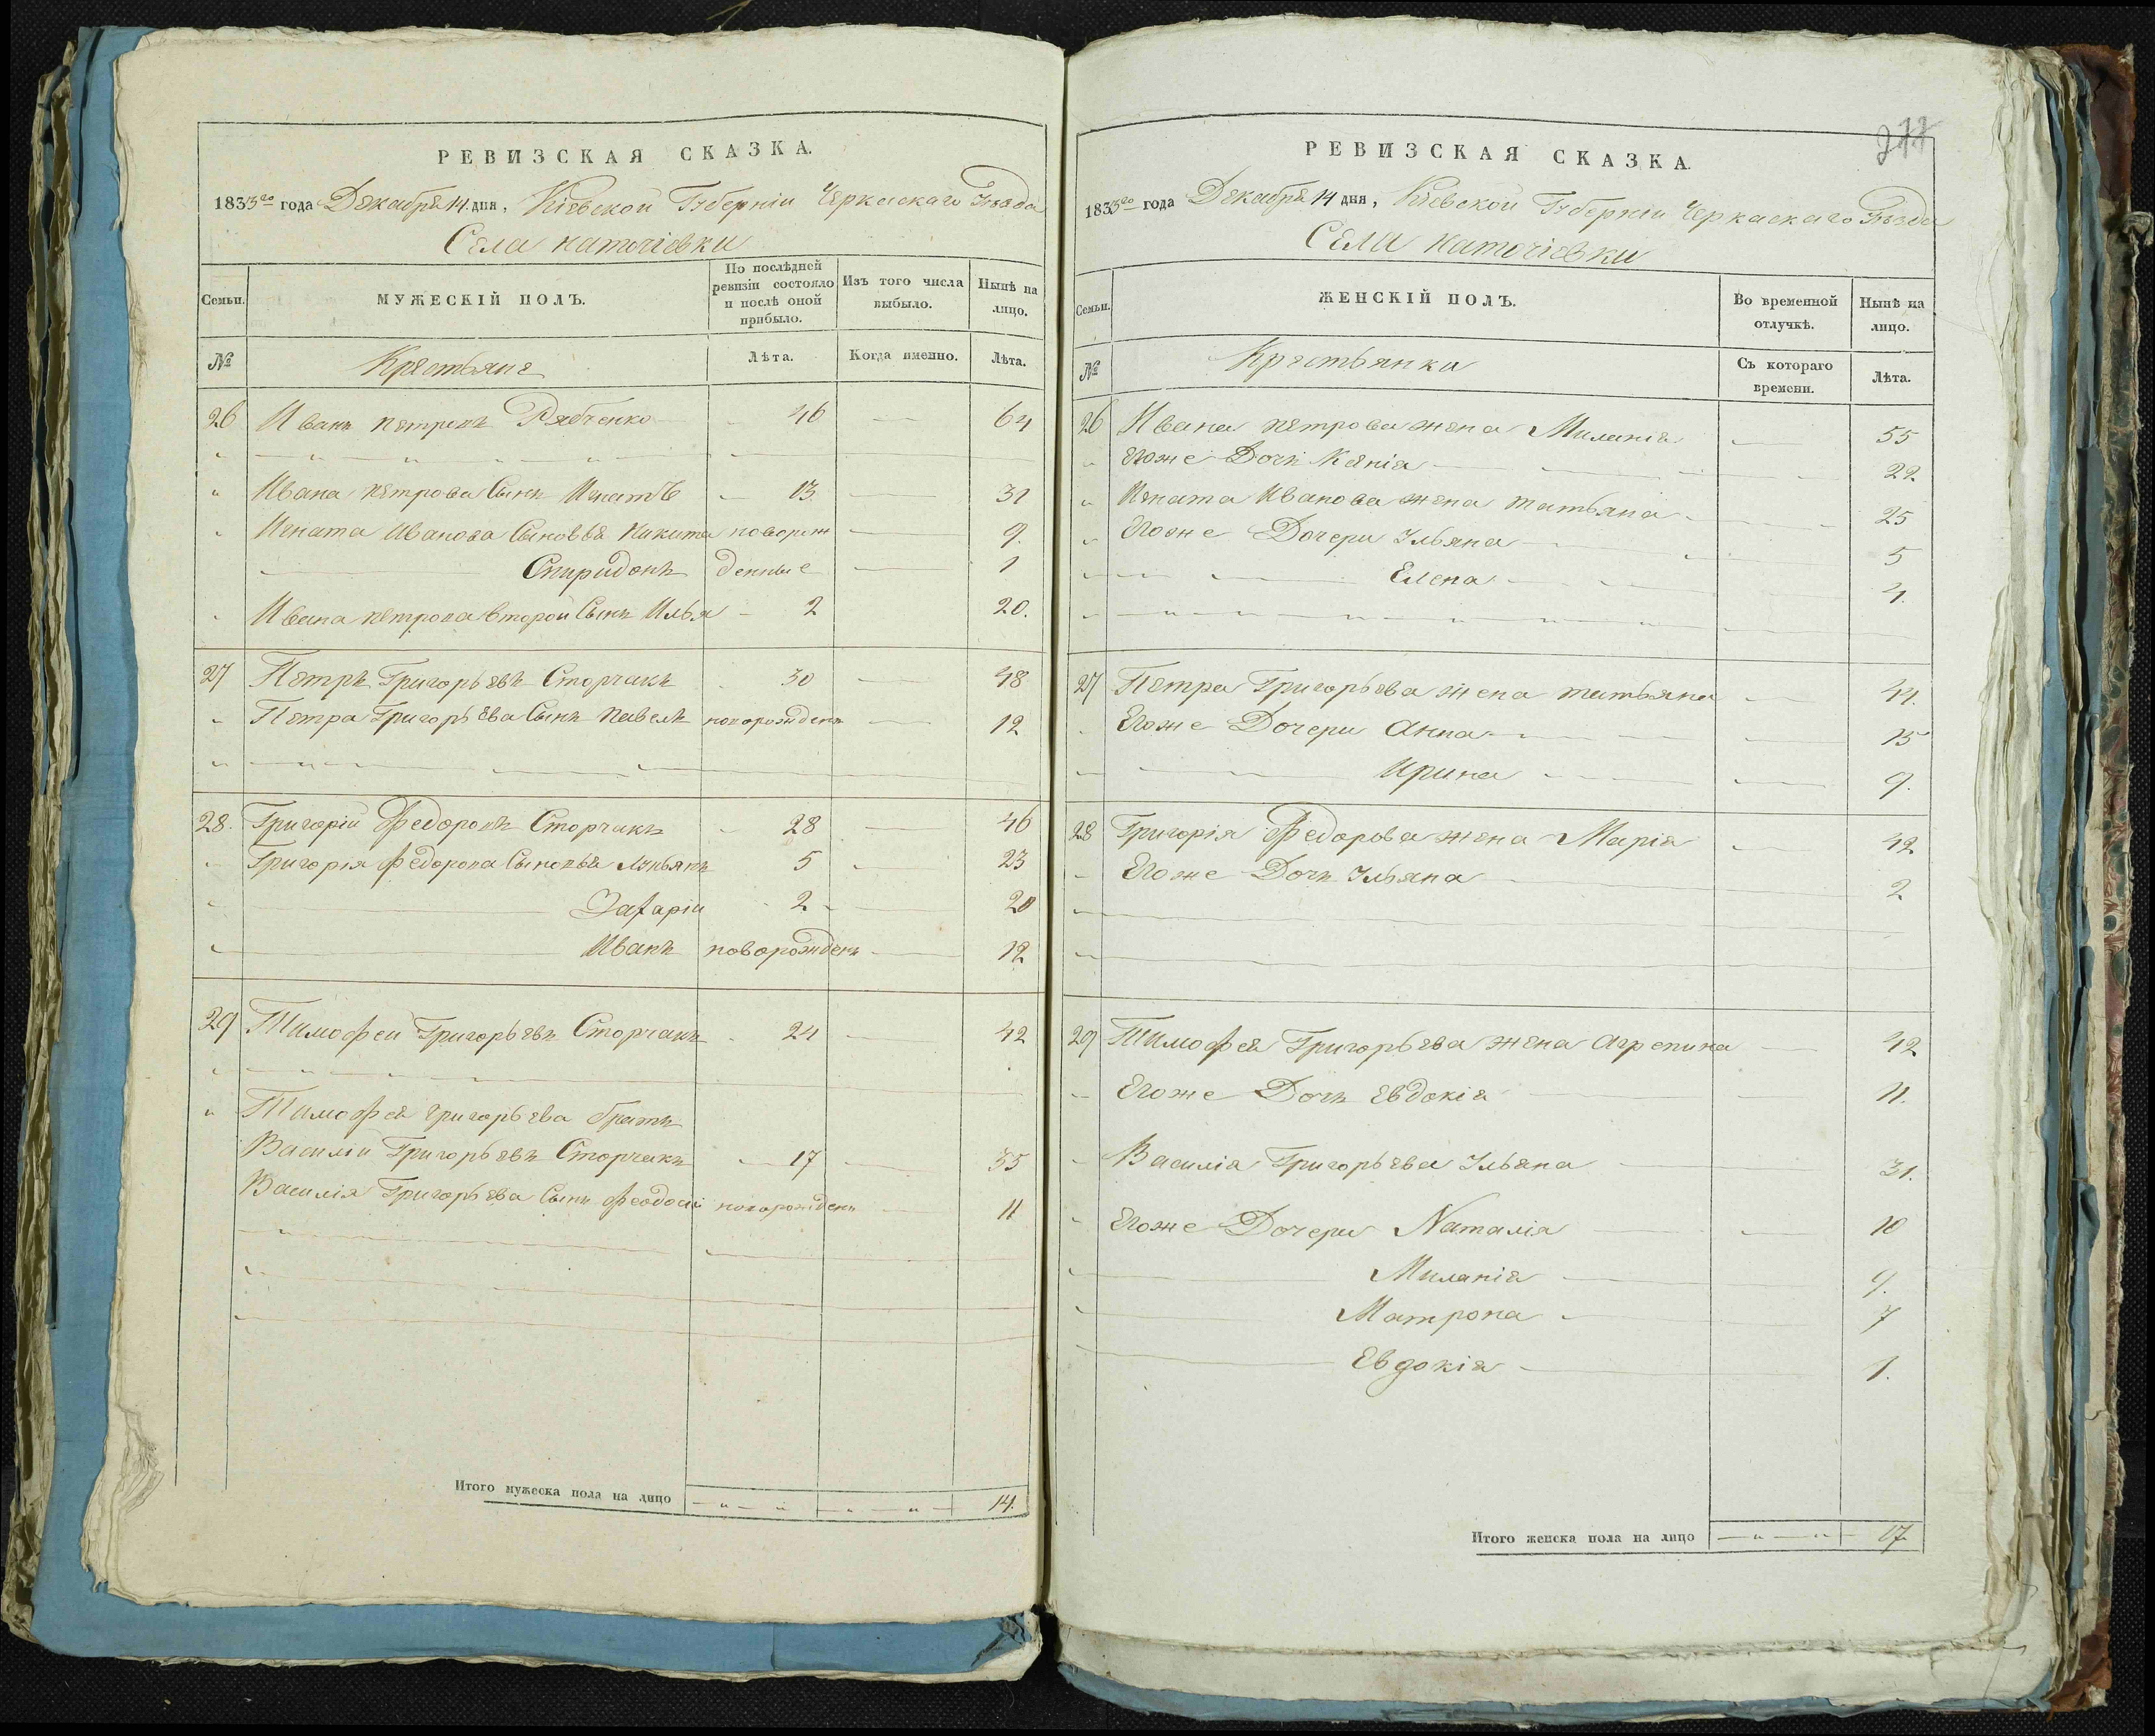 РЕВИЗСКАЯ СКАЗКА.
1833го года Декабря 14 дня, Кіевской Губерніи Черкаскаго Уезда
Села
Семьи.
МУЖЕСКІЙ ПОЛЪ.
По послѣдней ревизіи состояло и послѣ оной прибыло.
Изъ того числа выбыло.
Нынѣ на лицо.
№
Крестьяне
Лѣта.
Когда именно.
Лѣта.
26 Иванъ Петровъ Рябченко 46 64
Ивана Петрова Сынъ Игнатъ 13 31
Игната Иванова Сыновья Никита новорож 9.
Спиридонъ денные 1
Ивана Петрова второй Сынъ Илья 2 20.
27 Петръ Григорьевъ Сторчакъ 30 48
Петра Григорьева Сынъ Павелъ новорожденъ 12
28. Григорій Федоровъ Сторчакъ 28 46
Григорія Федорова Сыновья Лукьянъ 5 23
Захарій 2 20
Иванъ новорожденъ 12
29 Тимофей Григорьевъ Сторчакъ 24 42
Тимофея Григорьева братъ
Василий Григорьевъ Сторчакъ 17 35
Василія Григорьева Сынъ Феодосій новорожденъ 11
Итого мужеска пола на лицо 14.
277
РЕВИЗСКАЯ СКАЗКА.
1833го года Декабря 14 дня, Кіевской Губерніи Черкаскаго Уезда
Села
Семьи.
ЖЕНСКІЙ ПОЛЪ.
Во временной отлучкѣ.
Нынѣ на лицо.
№
Крестьянки
Съ котораго времени.
Лѣта.
26 Ивана Петрова жена Миланія 55
Егоже Дочь Ксенія 22
Игната Иванова жена Татьяна 25
Егоже Дочери Ульяна 5
Елена 4.
27 Петра Григорьева жена Татьяна 44.
Егоже Дочери Анна 15
Ирина 9.
28 Григорія Федорова жена Марія 42
Егоже Дочь Ульяна 2
29 Тимофея Григорьева жена Агрепина 42
Егоже Дочь Евдокія 11.
Василія Григорьева Ульяна 31.
Егоже Дочери Наталія 10
Миланія 9.
Матрона 7
Евдокія 1.
Итого женска пола на лицо 17